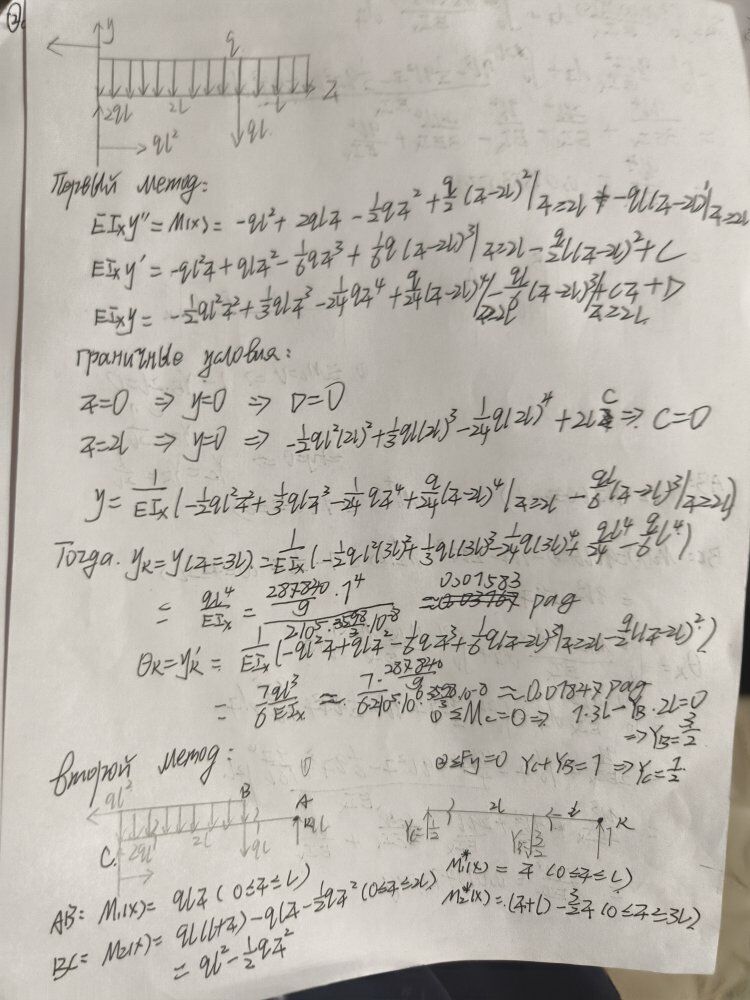 ②
y
q
z
2ql 2l l
ql² ql
Первый метод:
EIxy''=M(x)= -ql²+2qlz-½qz²+q/2(z-2l)²|z≥2l -ql(z-2l)¹|z≥2l
EIxy'=-ql²z+qlz²-1/6qz³+1/6q(z-2l)³|z≥2l-q/2l(z-2l)²+C
EIxy= -½ql²z²+1/3qlz³-1/24qz⁴+q/24(z-2l)⁴|z≥2l-ql/6(z-2l)³|z≥2l+Cz+D
граничные условия:
z=0 ⇒ y=0 ⇒ D=0
z=2l ⇒ y=0 ⇒ -½ql²(2l)²+1/3ql(2l)³-1/24q(2l)⁴+2lC ⇒ C=0
y=1/EIx(-½ql²z²+1/3qlz³-1/24qz⁴+q/24(z-2l)⁴|z≥2l-ql/6(z-2l)³|z≥2l)
Тогда. yk=y(z=3l)=1/EIx(-½ql²(3l)²+1/3ql(3l)³-1/24q(3l)⁴+ql⁴/24-q/6l⁴)
= ql⁴/EIx = 0.01583 рад
θk=yk'=1/EIx(-ql²z+qlz²-1/6qz³+1/6q(z-2l)³|z≥2l-q/2l(z-2l)²)
= 7ql³/6EIx ≈ 0.01847 рад
① ΣMc=0 ⇒ 1·3l-YB·2l=0
⇒YB=3/2
② ΣFy=0 Yc+YB=1 ⇒Yc=1/2
второй метод:
ql² B A
K ql
C. 2ql 2l ql
Yc 1/2 2l l K
YB 3/2 1
AB: M₁(x)= qlz (0≤z≤l)
M₁*(x)= z (0≤z≤l)
BC= M₂(x)= ql(l+z)-qlz-½qz²(0≤z≤2l)
M₂*(x)=(z+l)-3/2z (0≤z≤3l)
= ql²-½qz²